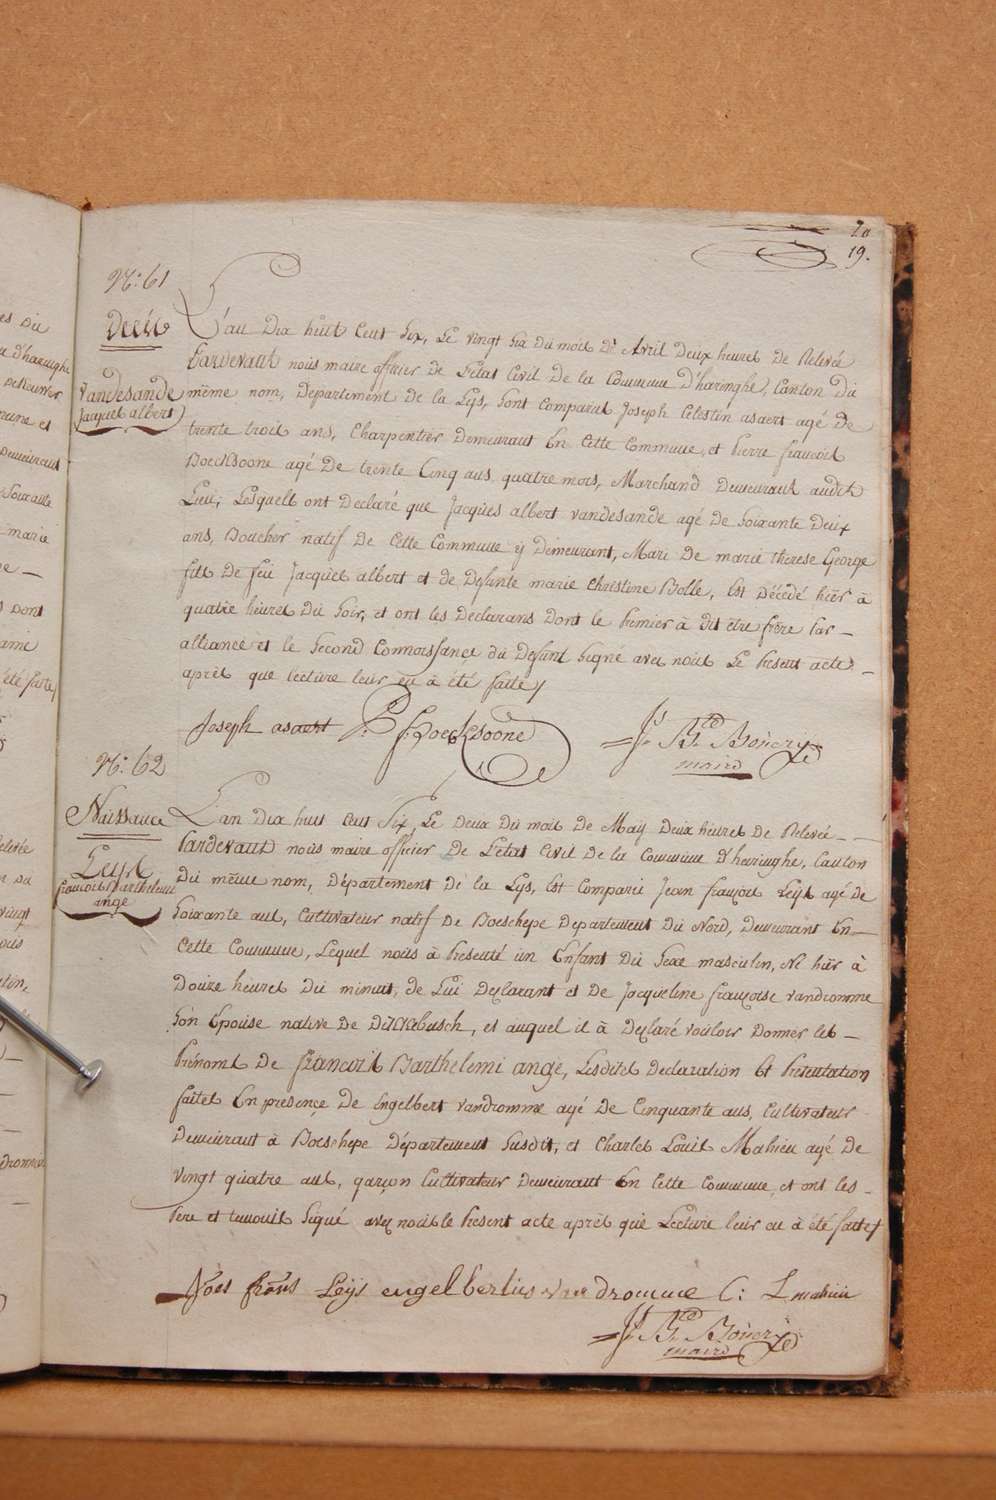 20
19.
N.º 61
Décè
Vandesande
Jacques albert
L'an Dix huit Cent Six, Le vingt Six du mois de Avril Deux heures de Relevée
Pardevant nous maire officier de L'état Civil de la Commune D'haringhe, Canton du
même nom, Département de la Lys, sont comparus Joseph Célestin asaert agé de
trente trois ans, Charpentier demeurant En Cette Commune, et Pierre françois
Boecksoone agé de trente Cinq ans quatre mois, Marchand demeurant audit
Lieu, Lesquels ont Declaré que Jacques albert vandesande agé de Soixante Deux
ans, Boucher natif de Cette Commune ÿ Demeurant, Mari de marie therese George
fils de feu Jacques albert et de Defunte marie Christine Bolle, Est Décédé hïer à
quatre heures du Soir, et ont les Declarans dont le Premier à dit être frère Par-
alliance et le Second Connoissance du Defunt Signé avec nous Le Present acte-
après que lecture leur en à été faite/
Joseph asaert P. f. Boecksoone Js. Bte Bouery
maire
N.º 62
Naissance
Leys
françois Barthelemi
ange
L'an Dix huit Cent Six, Le Deux du mois de Maÿ Deux heures de Relevée-
Pardevant nous maire officier de L'état Civil de la Commune d'haringhe, Canton
du même nom, Département de la Lys, Est Comparu Jean françois Leÿs agé de
Soixante ans, Cultivateur natif de Boeschepe departement du Nord, demeurant En-
Cette Commune, Lequel nous à Presenté un Enfant du Sexe masculin, Né hïer à
Douze heures du minuit, de Lui Declarant et de Jacqueline françoise vandromme
son Epouse native de Dickebusch, et auquel il à Declaré vouloir donner les-
Prénoms de françois Barthelemi ange, Lesdites declaration Et Presentation
faites En presence de Engelbert vandromme agé de Cinquante ans, Cultivateur
demeurant à Boeschepe Département Susdit, et Charles Louis Mahieu agé de
vingt quatre ans, garçon Cultivateur demeurant En Cette Commune, et ont les-
Pere et temoins Signé avec nous le Present acte après que Lecture leur en à été faite/
Joes frans Leÿs engelbertus van dromme C: L mahieu
Js. Bte Bouery
maire